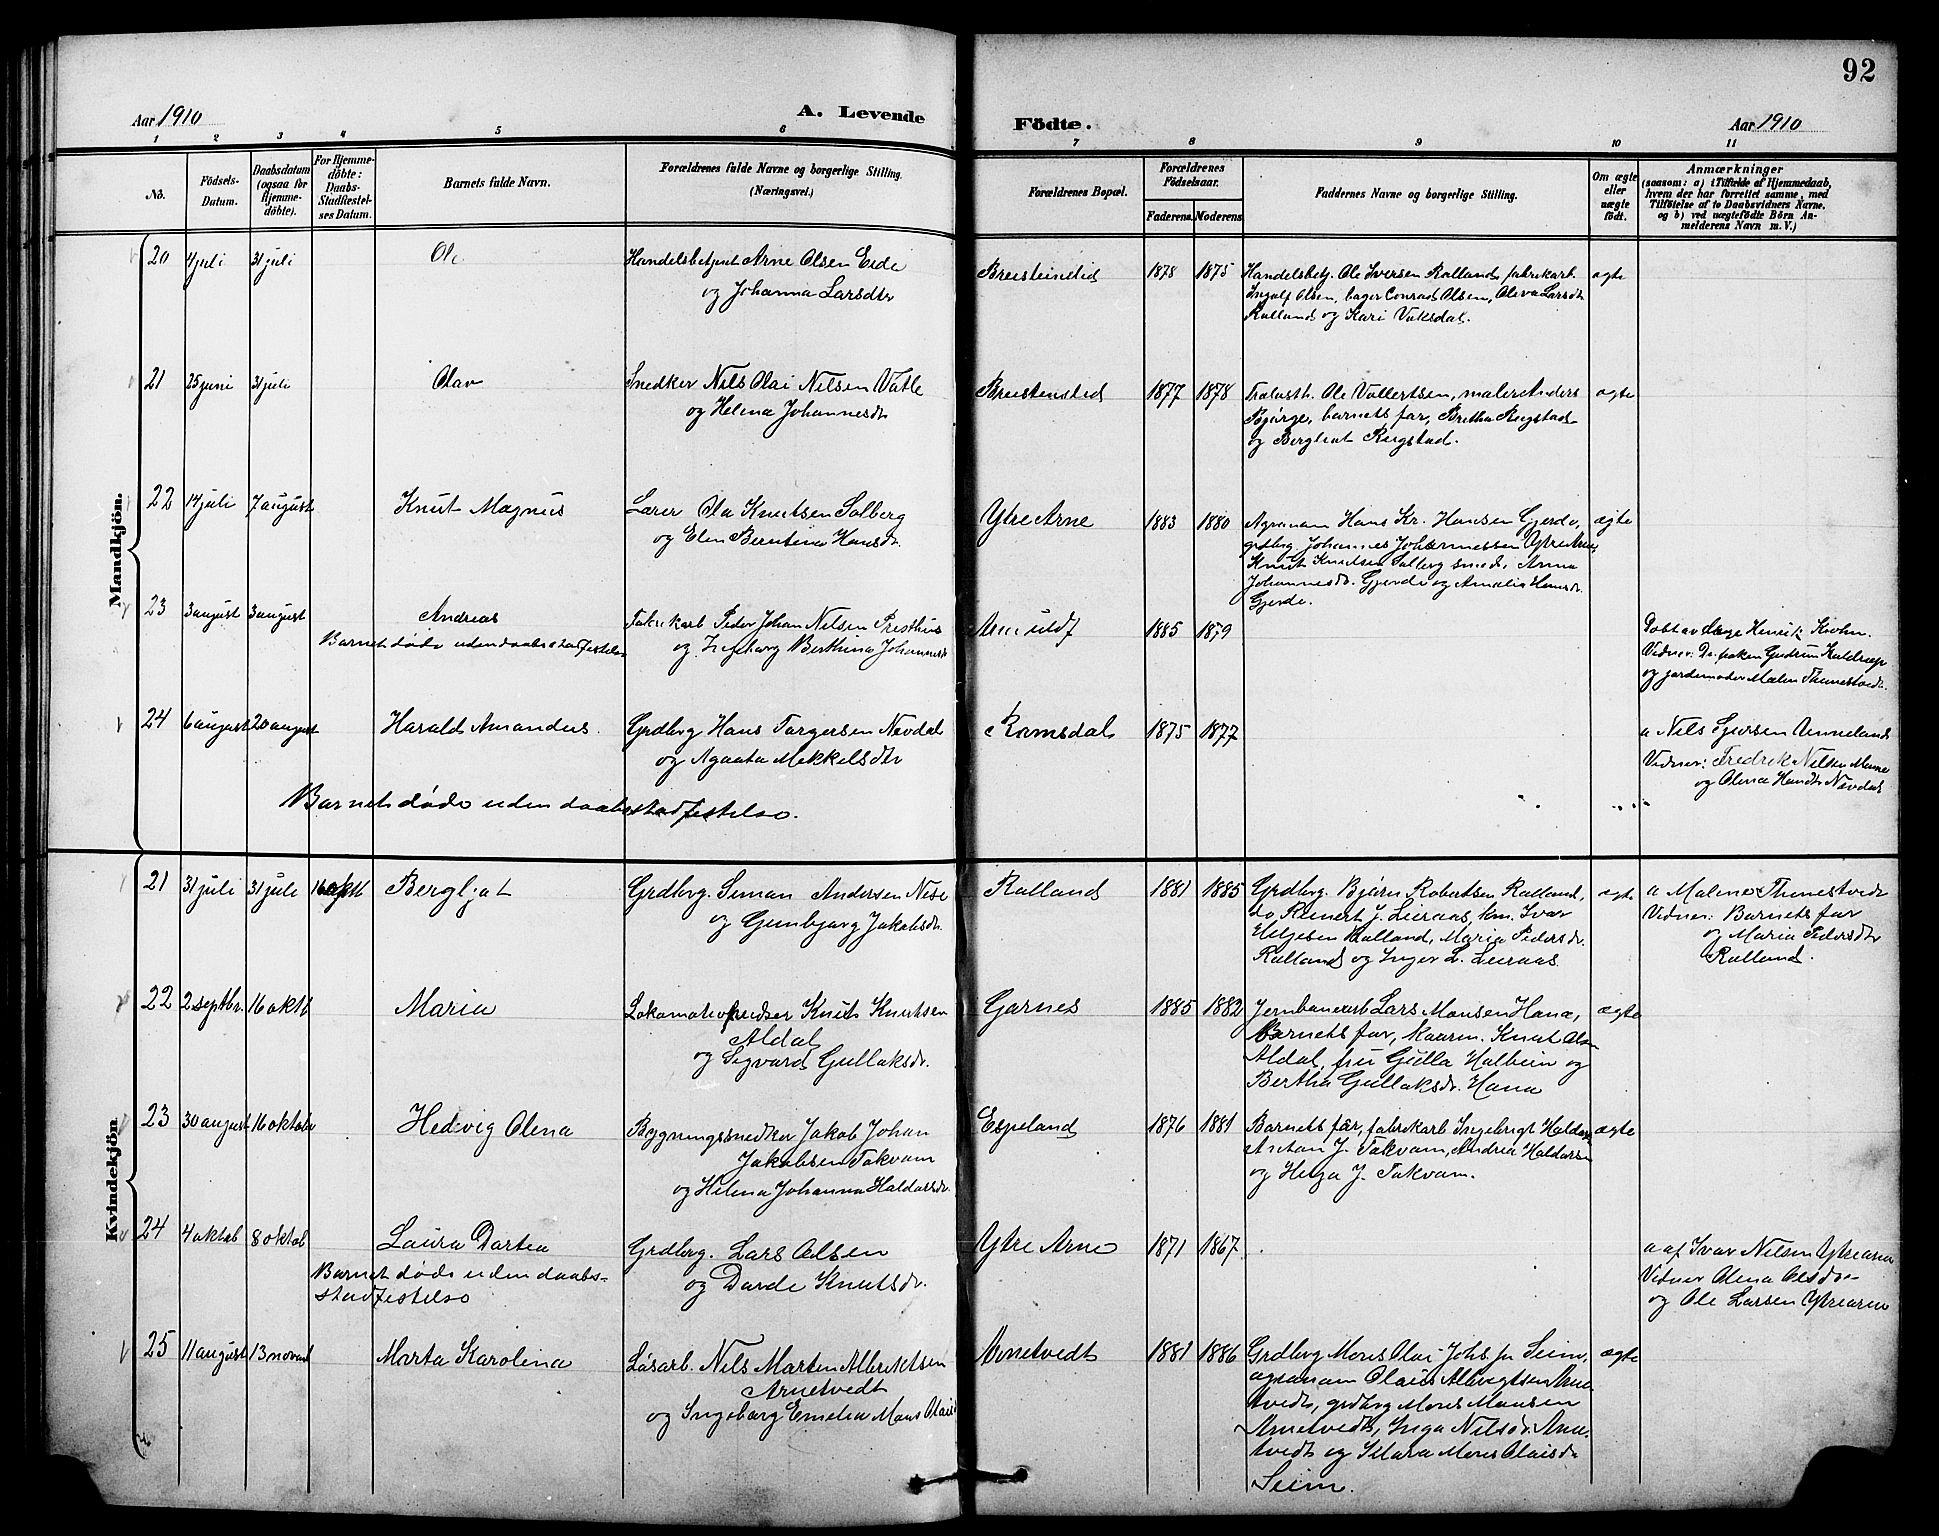 92
Aar 1910
A. Levende
Födte.
Aar 1910
1 2 3 4 5 6 7 8 9 10 11
No.
Födsels-
Datum.
Daabsdatum
(ogsaa for
Hjemme-
döbte).
For Hjemme-
döbte:
Daabs-
Stadfæstel-
ses Datum.
Barnets fulde Navn.
Forældrenes fulde Navne og borgerlige Stilling.
(Næringsvei.)
Forældrenes Bopæl.
Forældrenes
Födselsaar.
Faderens. Moderens.
Faddernes Navne og borgerlige Stilling.
Om ægte
eller
uægte
födt.
Anmærkninger
(saasom: a) i Tilfælde af Hjemmedaab,
hvem der har forrettet samme, med
Tilföielse af to Daabsvidners Navne.
og b) ved uægtefödte Börn An-
melderens Navn m. V.)
Mandkjön.
20 4 juli 31 juli Ole
Handelsbetjent Arne Olsen Eide
og Johanna Larsdtr
Breisteinstid 1878 1875
Handelsbetj. Ole Iversen Kalland, fabrikarb.
Ingolf Olsen, bager Conrad Olsen, Oleva Larsdtr
Kalland og Kari Vaksdal.
ægte
21 25 juni 31 juli Olav
Snedker Nils Olai Nilsen Vatle
og Helena Johannesdtr
Breistensteid 1877 1878
Ole Vallertsen, maler Anders
Bjørge, barnets far, Bretha Rugstad
og Bergliot Rugstad.
ægte
22 14 juli 7 august Knut Magnus
Lærer Ola Knutsen Solberg
og Elen Berntine Hansdr.
Ytre Arne 1883 1880
Agronom Hans Kr. Hansen Gjerde,
grdbrg Johannes Johannessen Ytre Arne,
Knut Knudsen Solberg smed, Anna
Johannesdr. Gjerde og Amalia Hansdr.
Gjerde.
ægte
23 3 august 3 august Andreas
Barnet døde uden daabsstadfestelse
Fabrikarb Peder Johan Nilsen Presthus
og Ingeborg Berthina Johannesdr
Arne uldf 1885 1879
Døbt av læge Henrik Krohn.
Vidner: Gudrun Kaldrup
og jordemoder Malen Thunestvedt.
24 6 august 20 august Harald Amandus.
Grdbrg Hans Torgersen Navdal
og Agaata Mikkelsdtr
Barnet døde uden daabsstadfestelse.
Romsdal 1875 1877
a Nils Sjursen Unneland
Vidner: Fredrik Nilsen
og Olena Hansdtr Navdal
Kvindekjön
21 31 juli 31 juli 16 oktb Bergljot
Grdbrg. Simon Andersen
og Gunbjørg Jakobsdr.
Kalland 1881 1885
Grdbrg. Bjørn Robertsen Kalland,
do, Reinert J. Leiraas, km. Ivar
Helgesen Kalland, Maria Pedersdr.
Kalland og Inger L. Leiraas.
ægte
a Malene Thunestvedt
Vidner: Barnets far
og Maria Pedersdtr
Kalland.
22 2 septbr. 16 oktb Maria
Lokomotivpudser Knut Knutsen
Aldal
og Sigvard Gullaksdr.
Garnes 1885 1882
Jernbanearb Lars Monsen Hana,
Barnets far, Knut Olsen
Aldal, fru Gulla Halbein og
Bertha Gullaksdr. Hana
ægte
23 30 august 16 oktober Hedvig Olena
Bygningssnedker Jakob Johan
Jakobsen Takvam
og Helena Johanna Haldorsdr.
Espeland 1876 1881
Barnets far, fabrikarb Ingebrigt Haldorsen
Anton J. Takvam, Andrea Haldorsen
og Helga J. Takvam.
ægte
24 4 oktob 8 oktob Laura Dortea
Barnet døde uden daabs-
stadfestelse
Grdbrg. Lars Olsen
og Dorde Knutsdr.
Ytre Arne 1871 1867.
a af Ivar Nilsen Ytrearne
Vidner Olena Olsdr
og Ole Larsen Ytrearne
25 11 august 13 novemb Marta Karolina
Løsarb. Nils Marten Albriktsen
Arnetvedt
og Ingeborg Emelia Mons Olaisd
Arnetvedt 1881 1886
Grdbrg Mons Olai Johs.sen Seim,
agronom Olais Albrigtsen Arne-
tvedt, grdbrg Mons Monsen
Arnetvedt, Inga Nilsdr. Arne-
tvedt og Klara Mons Olaisdr
Seim.
ægte